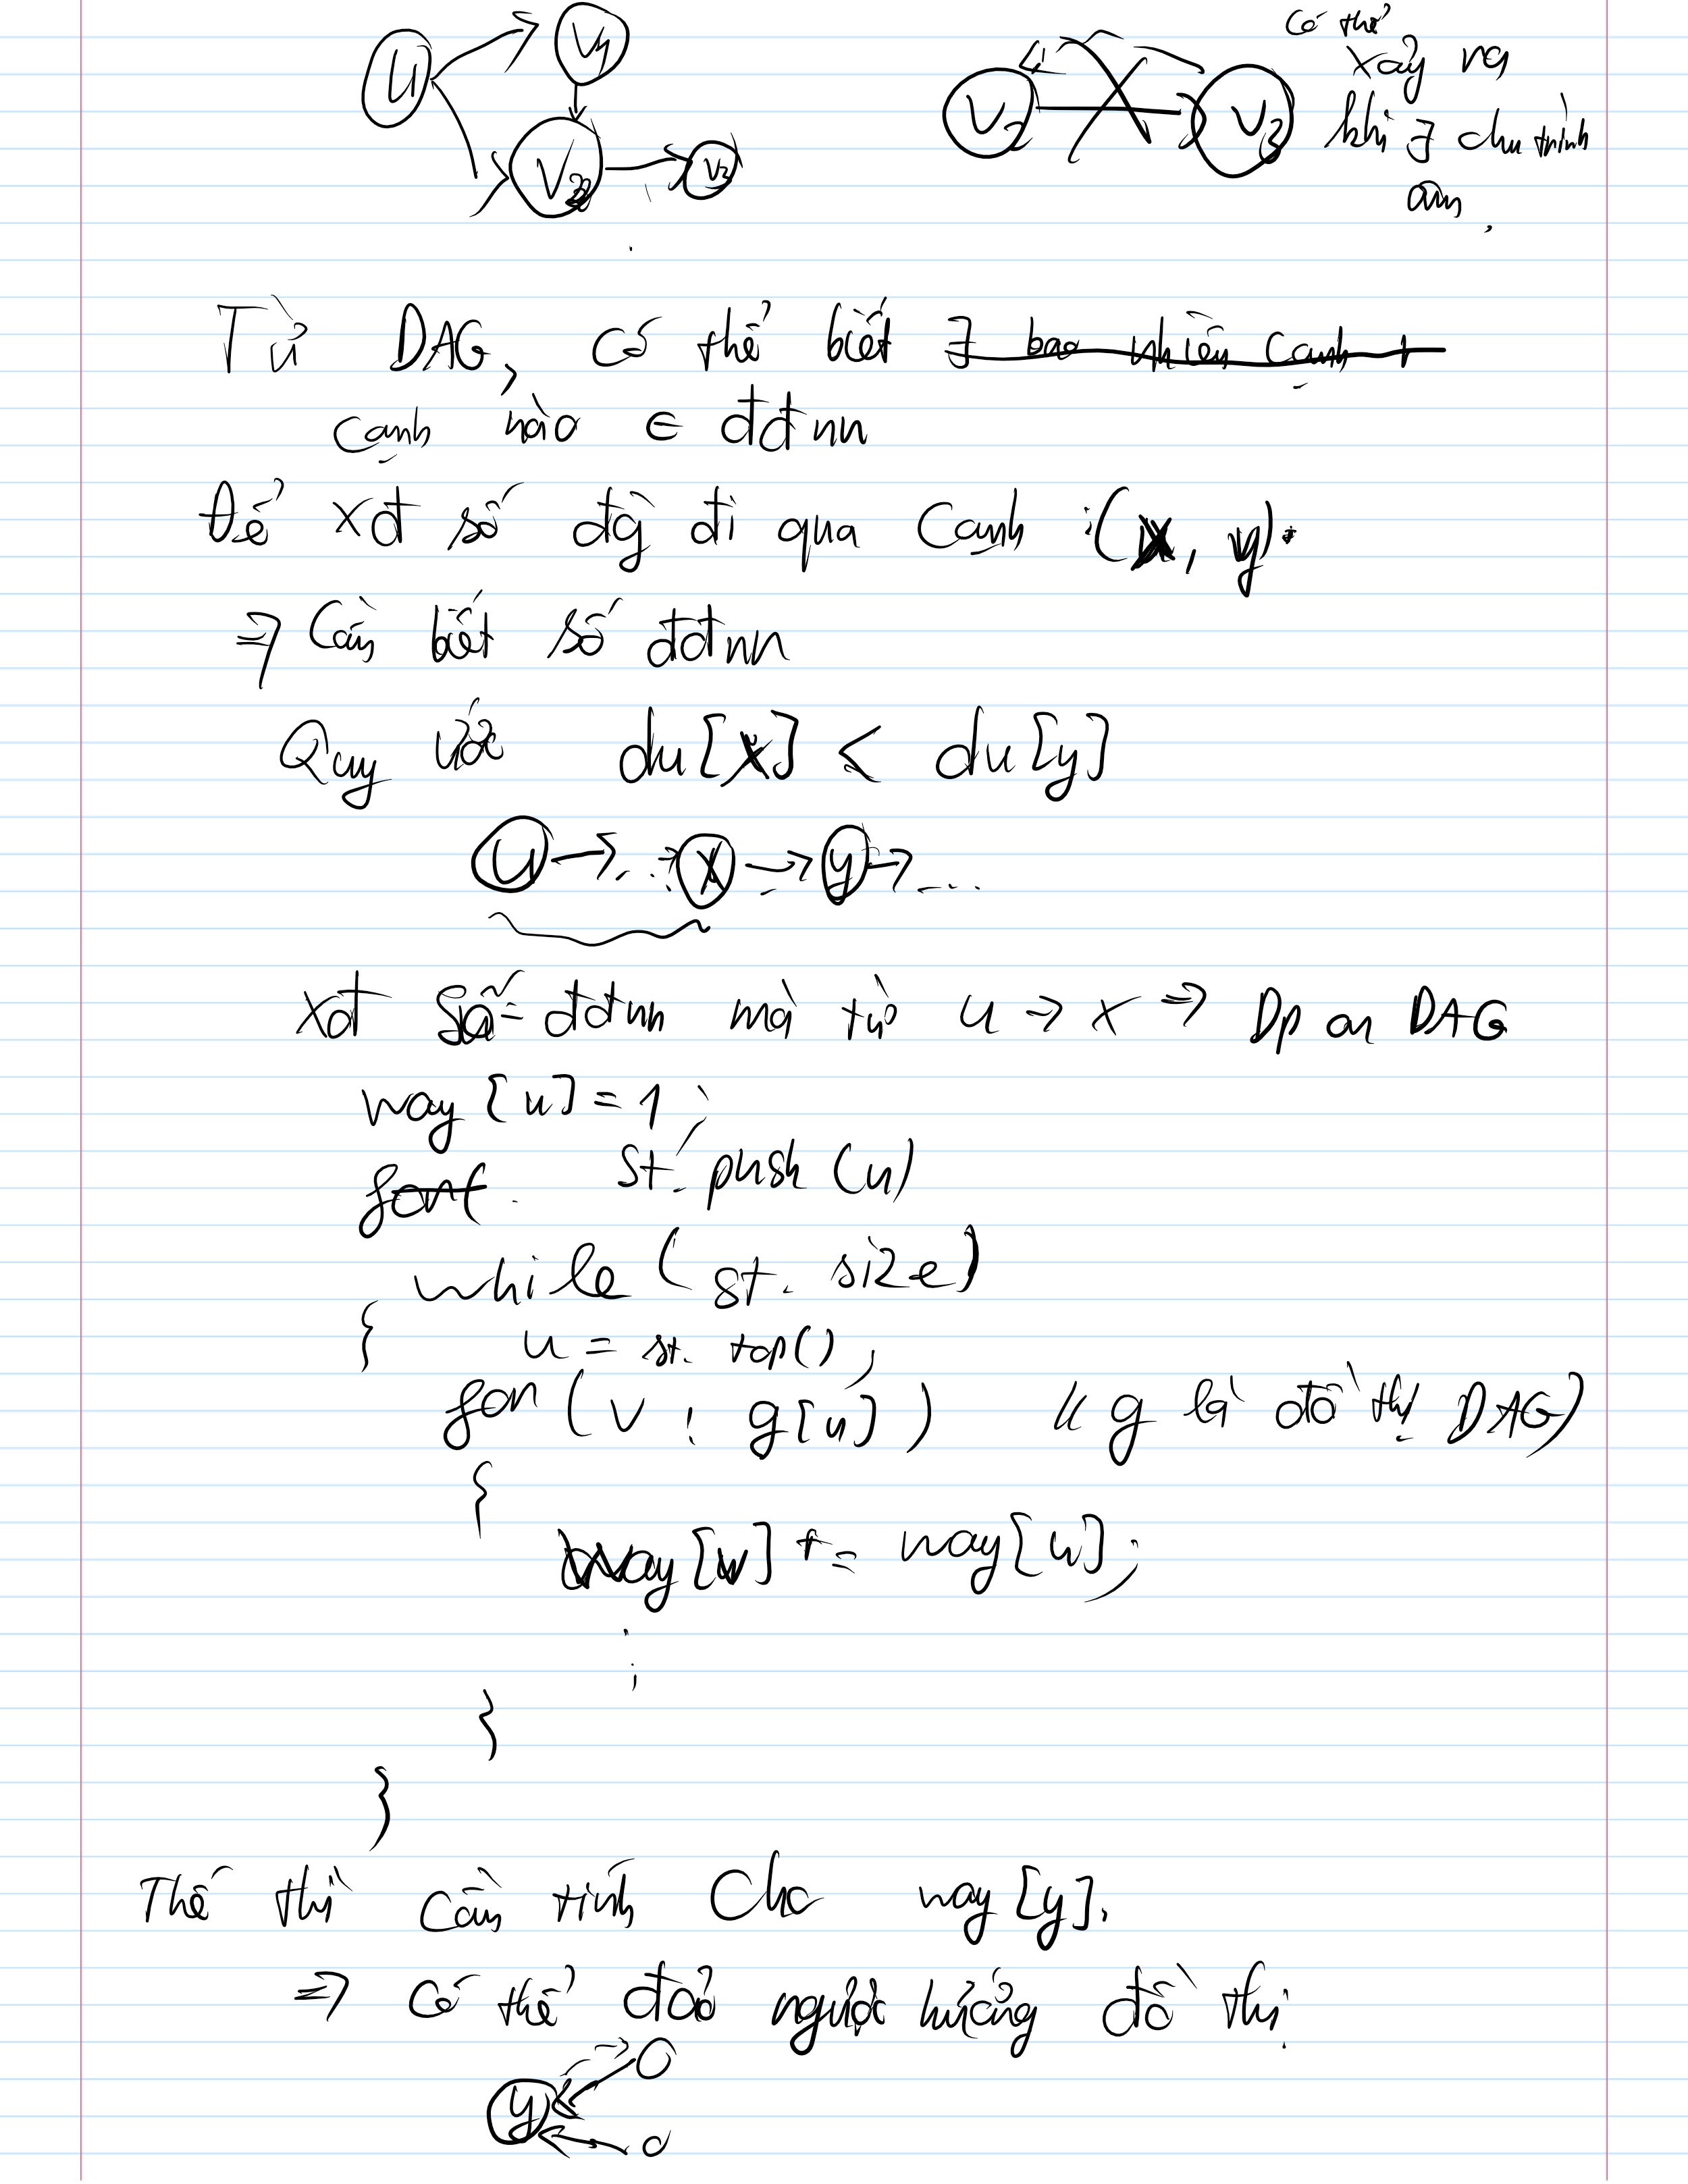 U
V1
V2
V3
V2
V3
Có thể
xảy ra
khi ∃ chu trình
âm.
Từ DAG, có thể biết ∃ bao nhiêu cạnh
cạnh nào ∈ đđnn
Để xđ số đg đi qua cạnh (x, y).
⇒ Cần biết số đđnn
Quy ước du[x] < du[y]
U → ... → x → y → ...
Xđ số đđnn mà từ u → x ⇒ Dp on DAG
way[u] = 1;
for( st.push(u)
while(st.size)
{ u = st.top();
for(v : g[u]) // g là đồ thị DAG
{
way[v] += way[u];
}
}
Thế thì cần tính cho way[y].
⇒ có thể đảo ngược hướng đồ thị
y